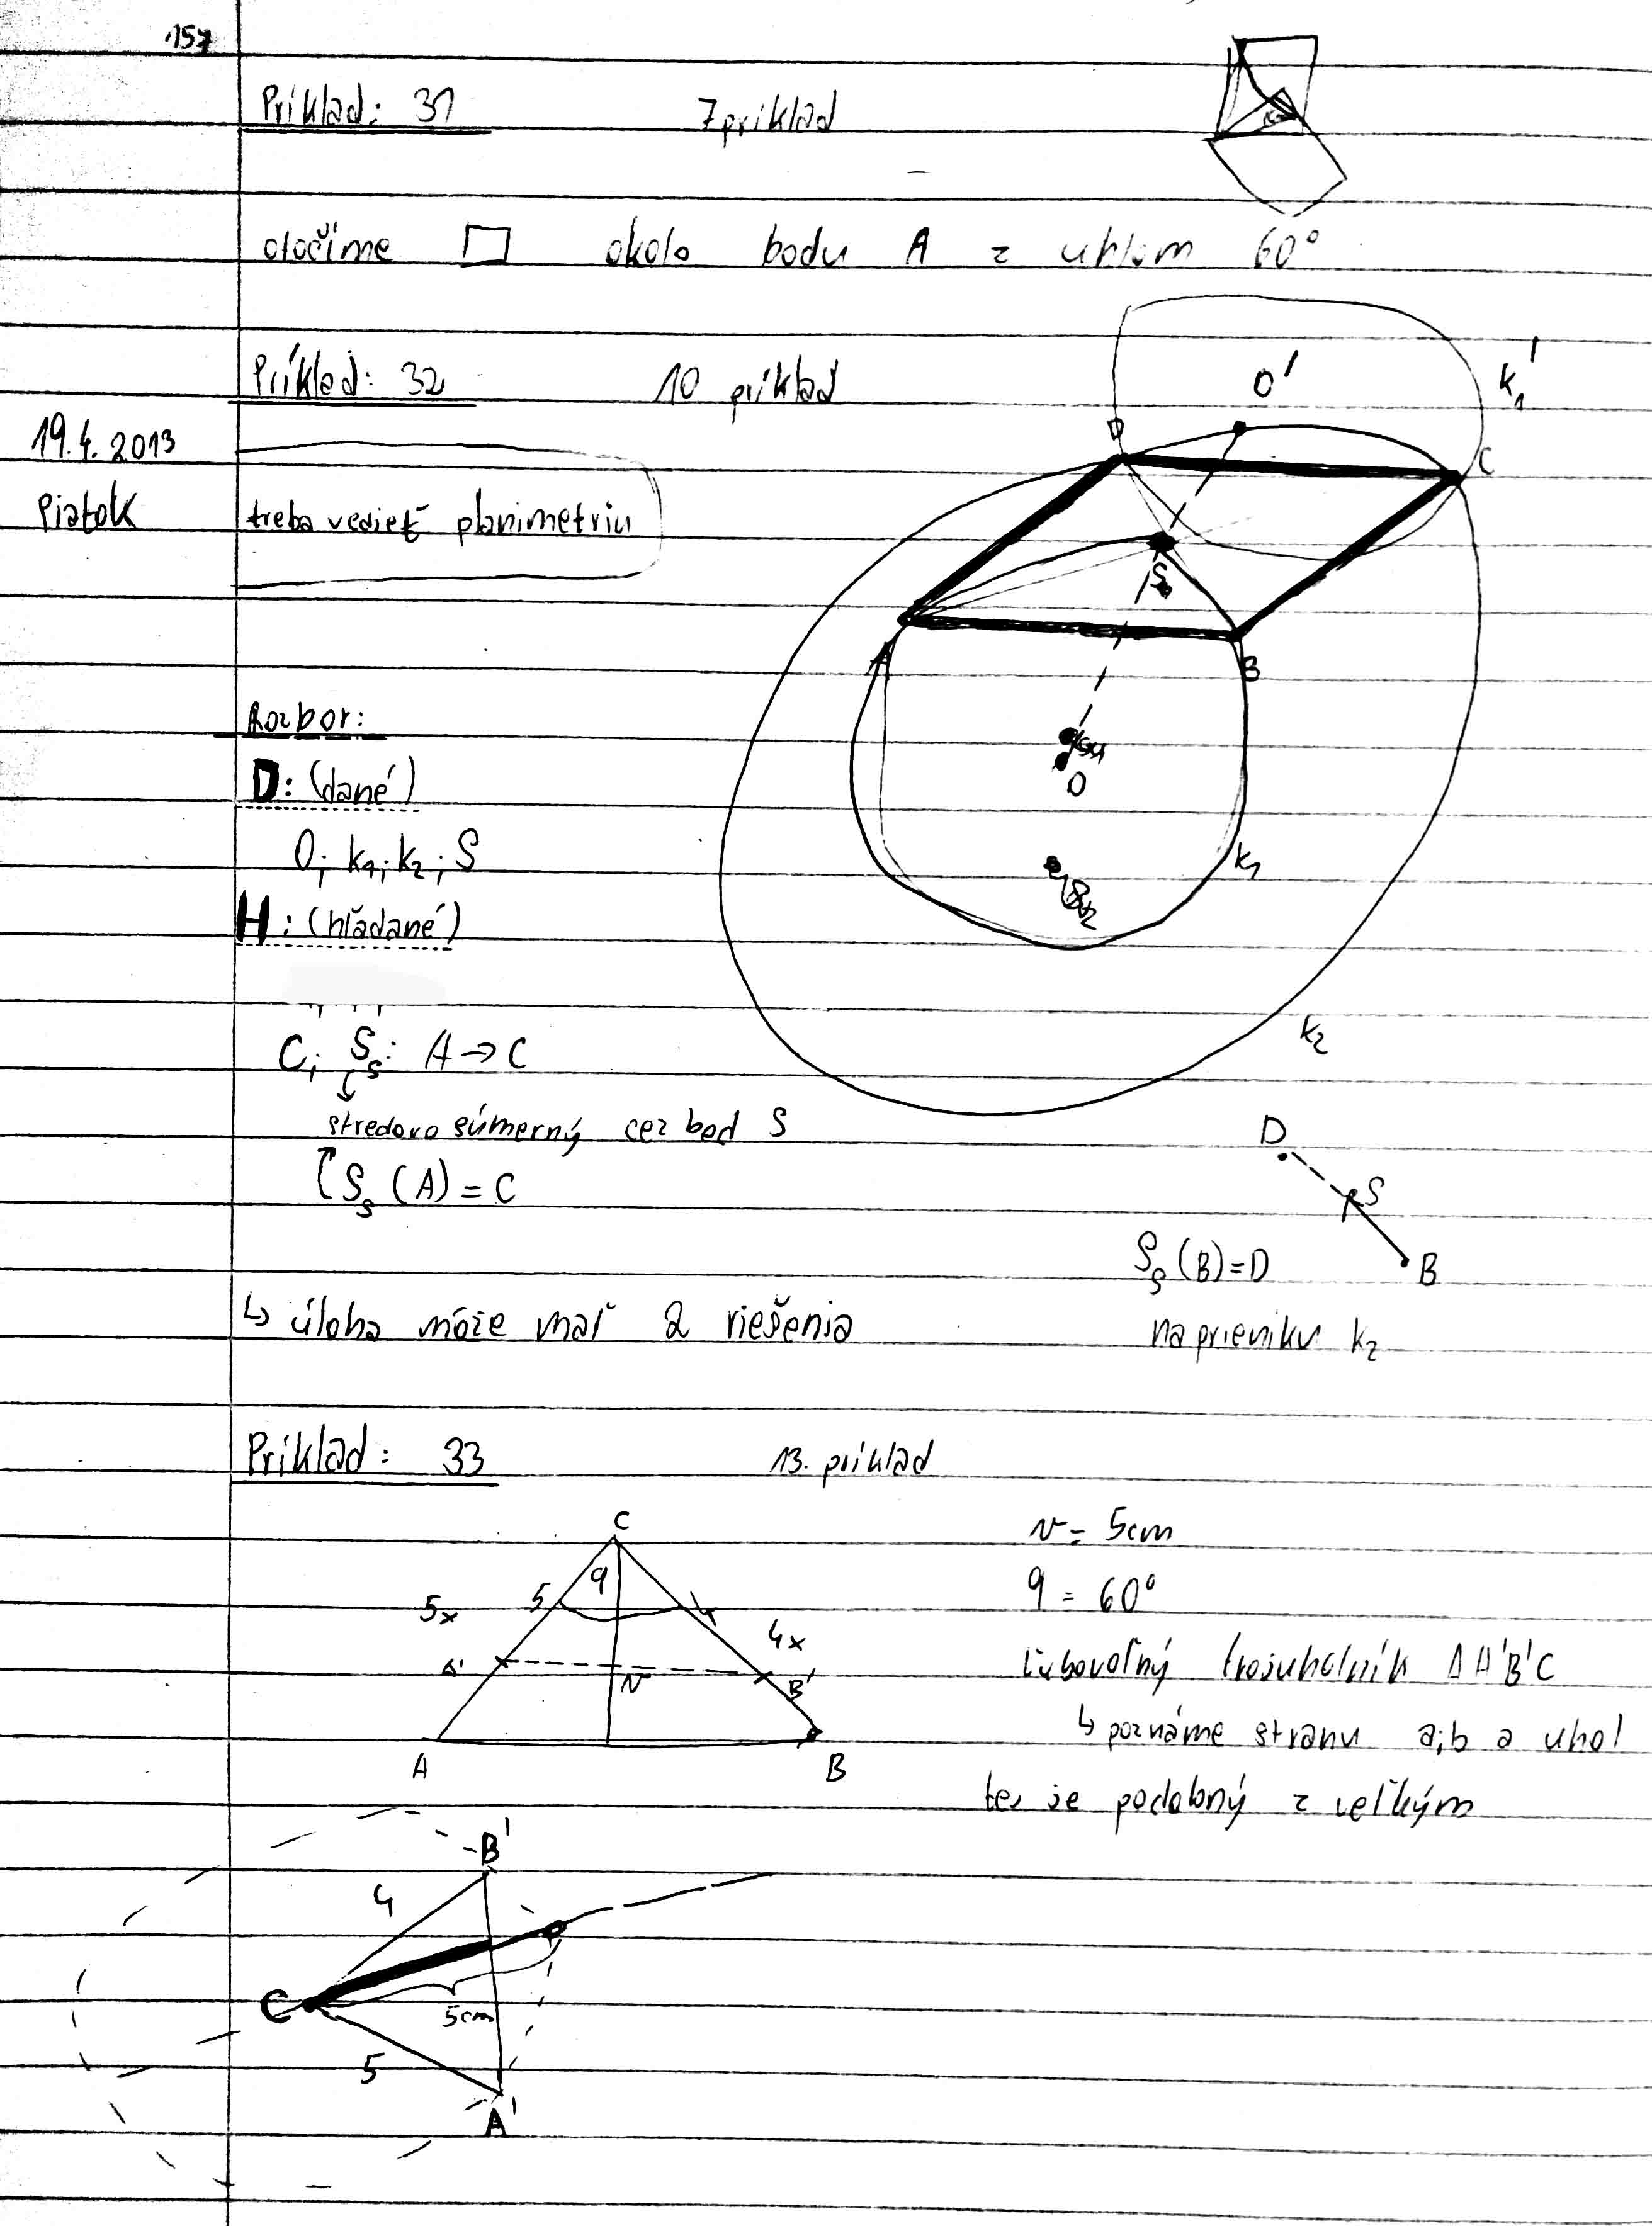 157
Príklad: 31 7 príklad
otočíme □ okolo bodu A z uhlom 60°
Príklad: 32 10 príklad
19.4.2013
Piatok
treba vedieť planimetriu
O'
k₁'
D
C
S
A
B
O
k₁
k₂
Rozbor:
D: (dané)
O; k₁; k₂; S
H: (hľadané)
C; S_S: A → C
stredovo súmerný cez bod S
S_S (A) = C
D
S
B
S_S (B) = D
na prieniku k₂
↳ úloha može mať 2 riešenia
Príklad: 33 13. príklad
C
5x 5 φ 4 4x
A' v B'
A B
v = 5cm
φ = 60°
ľubovoľný trojuholník ΔA'B'C
↳ poznáme stranu a;b a uhol
ten je podobný z veľkým
B'
4
C
5cm
5
A'